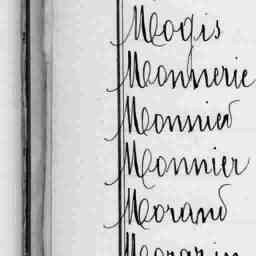 Mogis
Monnerie
Monnied
Monnier
Morand
Morazin